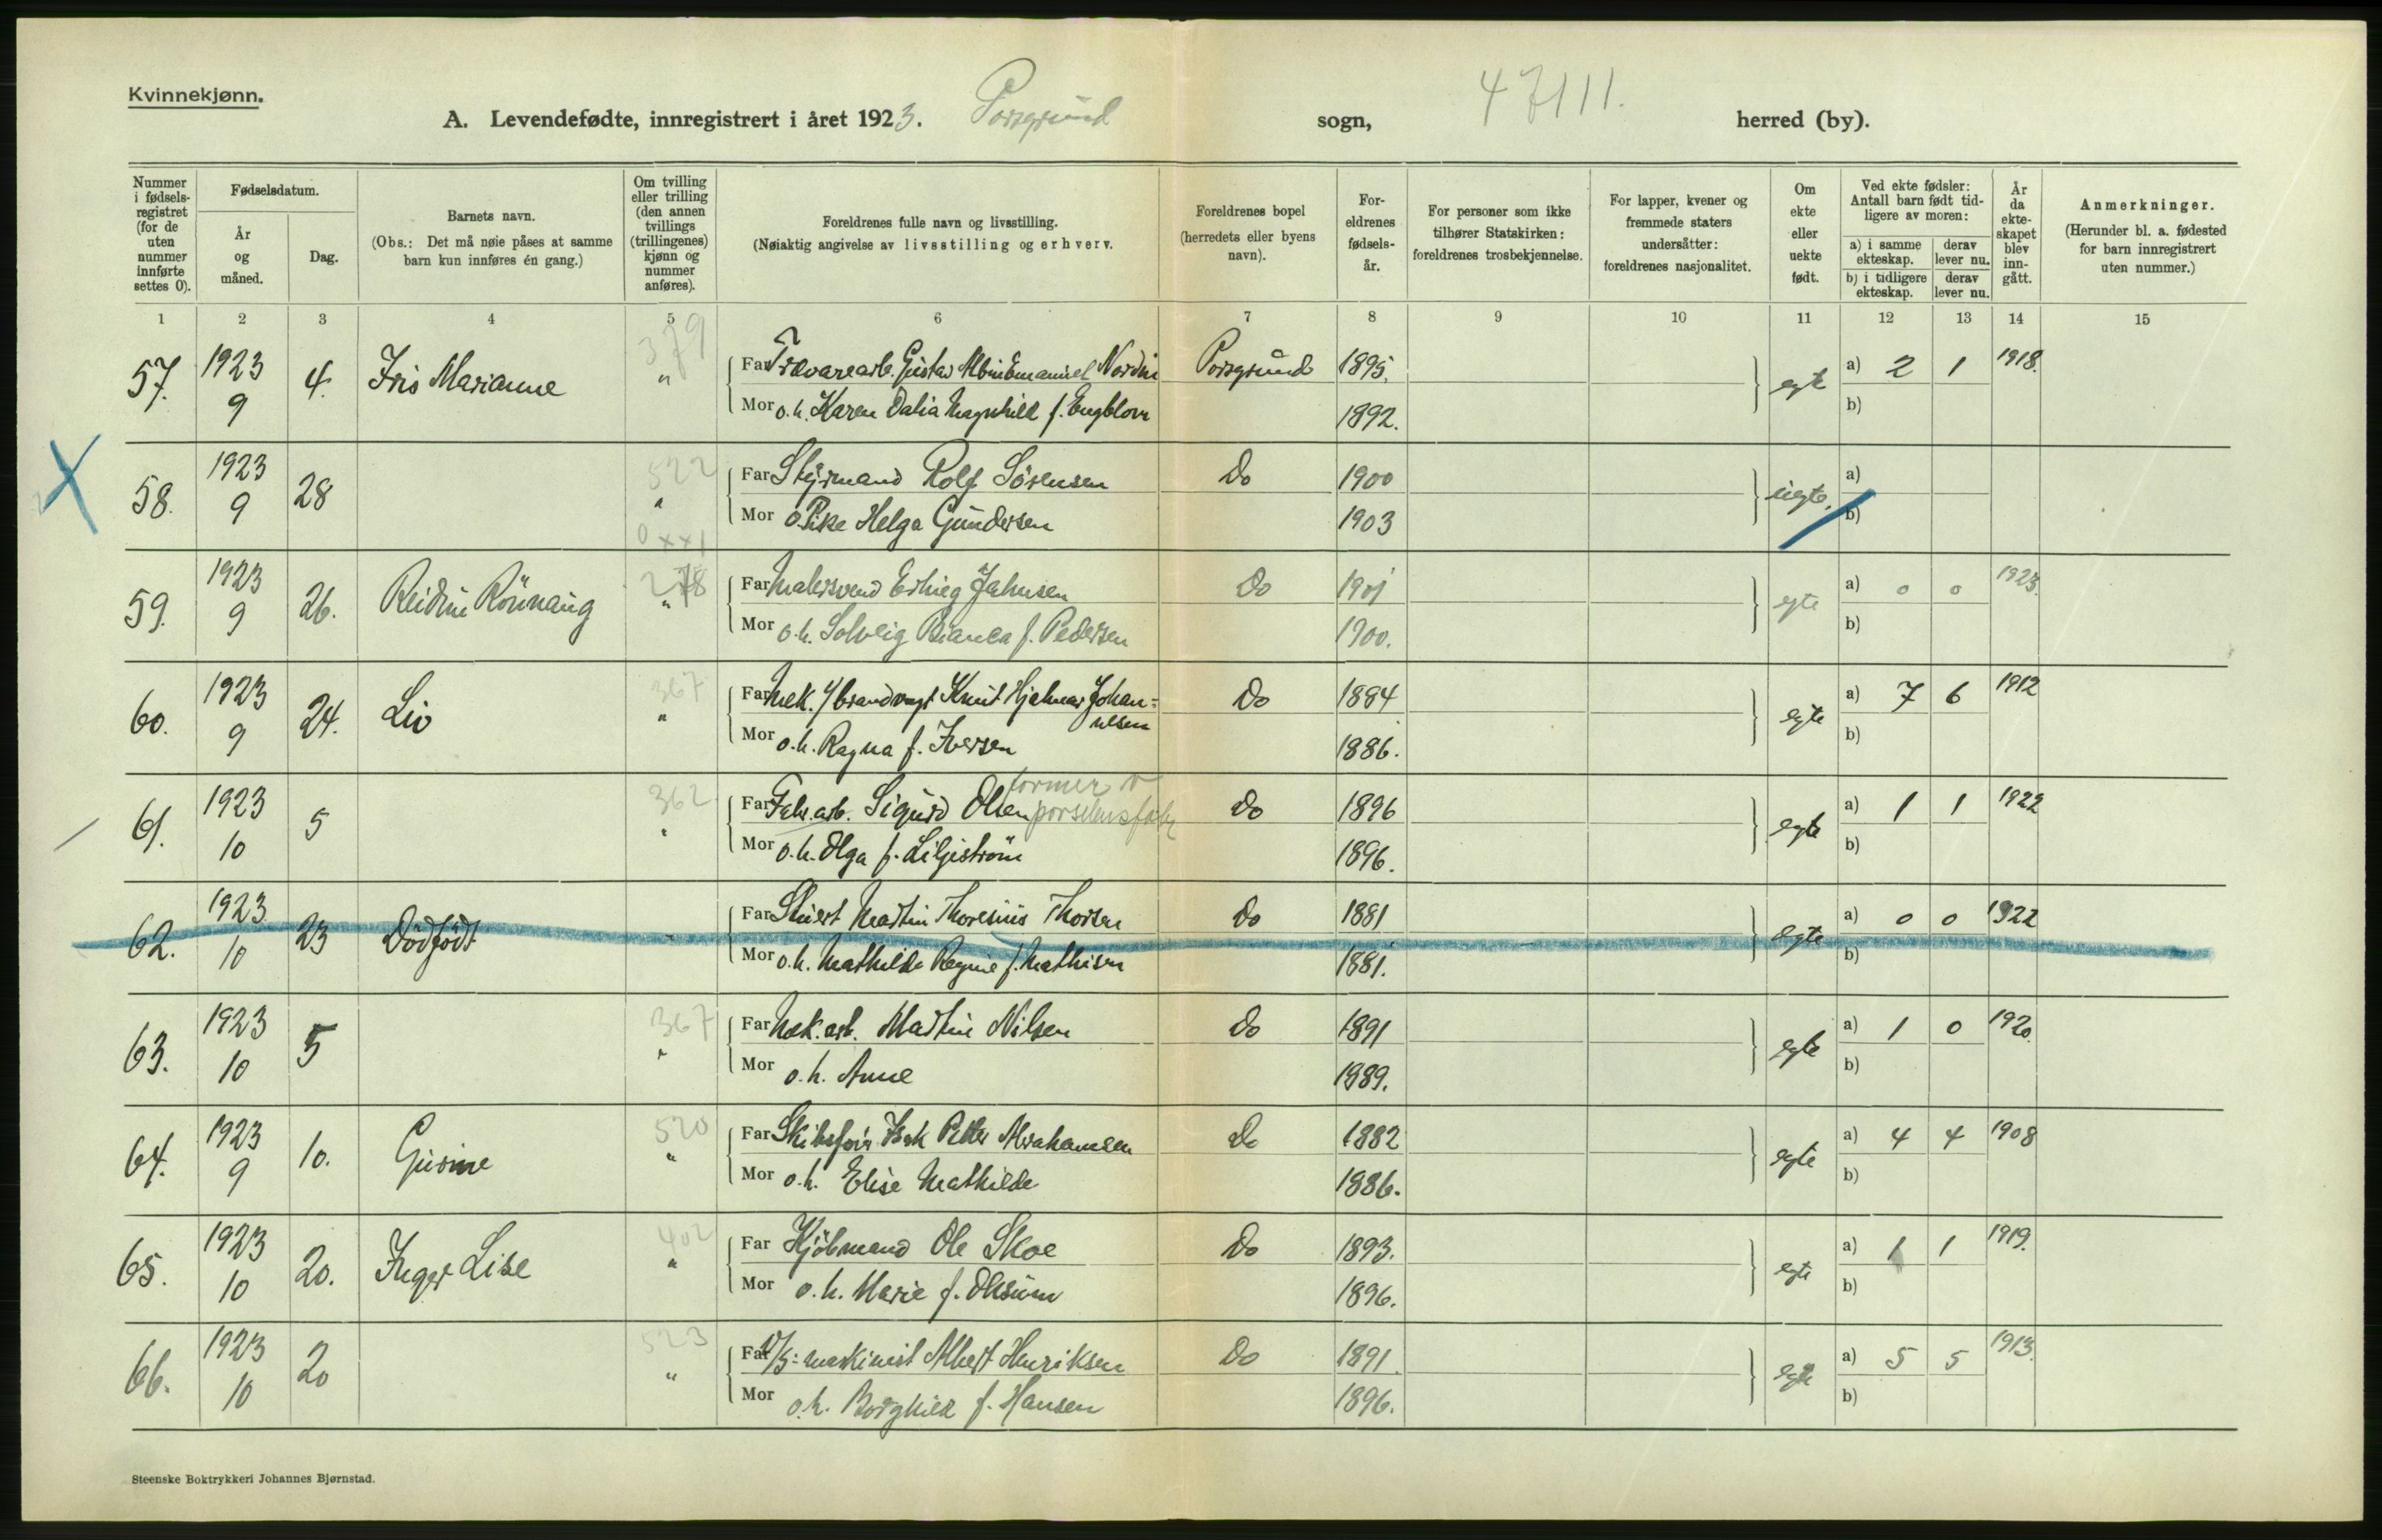 Kvinnekjønn.
A. Levendefødte, innregistrert i året 1923. Porsgrund sogn, 47111. herred (by).
Nummer i fødsels-registret (for de uten nummer innførte settes 0).
Fødselsdatum.
År og måned.
Dag.
Barnets navn.
(Obs.: Det må nøie påses at samme barn kun innføres én gang.)
Om tvilling eller trilling (den annen tvillings (trillingenes) kjønn og nummer anføres).
Foreldrenes fulle navn og livsstilling.
(Nøiaktig angivelse av livsstilling og erhverv.
Foreldrenes bopel (herredets eller byens navn).
For-eldrenes fødsels-år.
For personer som ikke tilhører Statskirken: foreldrenes trosbekjennelse.
For lapper, kvener og fremmede staters undersåtter: foreldrenes nasjonalitet.
Om ekte eller uekte født.
Ved ekte fødsler: Antall barn født tid-ligere av moren:
a) i samme ekteskap.
derav lever nu.
b) i tidligere ekteskap.
derav lever nu.
År da ekte-skapet blev inn-gått.
Anmerkninger.
(Herunder bl. a. fødested for barn innregistrert uten nummer.)
1 2 3 4 5 6 7 8 9 10 11 12 13 14 15
379
57. 1923 9 4. Iris Marianne " Far Trævarearb. Gustav Albin Emanuel Nordin Porsgrund 1895. egte a) 2 1 1918.
Mor o.h. Karen Dalia Magnhild f. Engblom 1892. b)
522
58. 1923 9 28 " Far Styrmand Rolf Sörensen Do 1900 uegte. a)
Mor o. Pike Helga Gundersen 1903 b)
0 xx1
278
59. 1923 9 26. Reidun Rönnaug " Far Malersvend Erling Jahnsen Do 1901 egte a) 0 0 1923.
Mor o.h. Solveig Bianca f. Pedersen 1900. b)
367
60. 1923 9 24. Liv " Far Mek. / brandvagt Knut Hjalmar Johan= Do 1884 egte a) 7 6 1912
nesen
Mor o.h. Ragna f. Iversen 1886. b)
362
former v
61. 1923 10 5 " Far Fabr.arb. Sigurd Olsen porselensfabr Do 1896 egte a) 1 1 1922
Mor o.h. Olga f. Liljeström 1896. b)
62. 1923 10 23 Dödfödt " Far Stuert Martin Thoresius Thorsen Do 1881 egte a) 0 0 1922
Mor o.h. Mathilde Regine f. Mathisen 1881. b)
367
63. 1923 10 5 " Far Mek. arb. Martin Nilsen Do 1891 egte a) 1 0 1920.
Mor o.h. Anne 1889. b)
520
64. 1923 9 10. Gurine " Far Skibsför Isak Petter Abrahamsen Do 1882 egte a) 4 4 1908
Mor o.h. Elise Mathilde 1886. b)
402
65. 1923 10 20. Inger Lise " Far Kjöbmand Ole Skoe Do 1893. egte a) 1 1 1919.
Mor o.h. Marie f. 1896. b)
523
66. 1923 10 20 " Far D/S: maskinist Albert Henriksen Do 1891. egte a) 5 5 1913.
Mor o.h. Borghild f. Hansen 1896. b)
Steenske Boktrykkeri Johannes Bjørnstad.